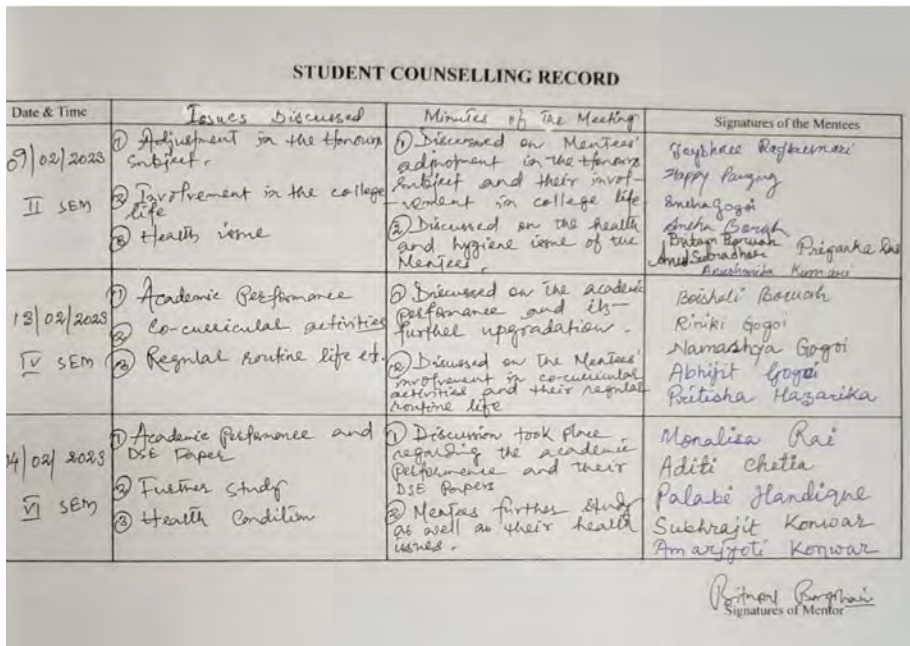 STUDENT COUNSELLING RECORD
Date & Time
Issues Discussed
Minutes of The Meeting
Signatures of the Mentees
09/02/2023
II SEM
① Adjustment in the Honours
Subject.
② Involvement in the college
life
③ Health issue
① Discussed on Mentees'
adjustment in the Honours
Subject and their invol-
-vement in college life
② Discussed on the health
and hygiene issue of the
Mentees.
Jayshree
Happy
Sneha Gogoi
Sneha Borah
Boruah
Priyanka Das
Kumari
13/02/2023
IV SEM
① Academic Performance
② Co-curricular activities
③ Regular routine life etc.
① Discussed on the academic
performance and its
further upgradation.
② Discussed on the Mentees'
involvement in co-curricular
activities and their regular
routine life
Boishali Boruah
Riniki Gogoi
Namashya Gogoi
Abhijit Gogoi
Pritisha Hazarika
14/02/2023
VI SEM
① Academic Performance and
DSE Paper
② Further Study
③ Health Condition
① Discussion took place
regarding the academic
performance and their
DSE Papers
② Mentees further study
as well as their health
issues.
Monalisa Rai
Aditi Chetia
Palabi Handique
Sukhrajit Konwar
Amarjyoti Konwar
Signatures of Mentor